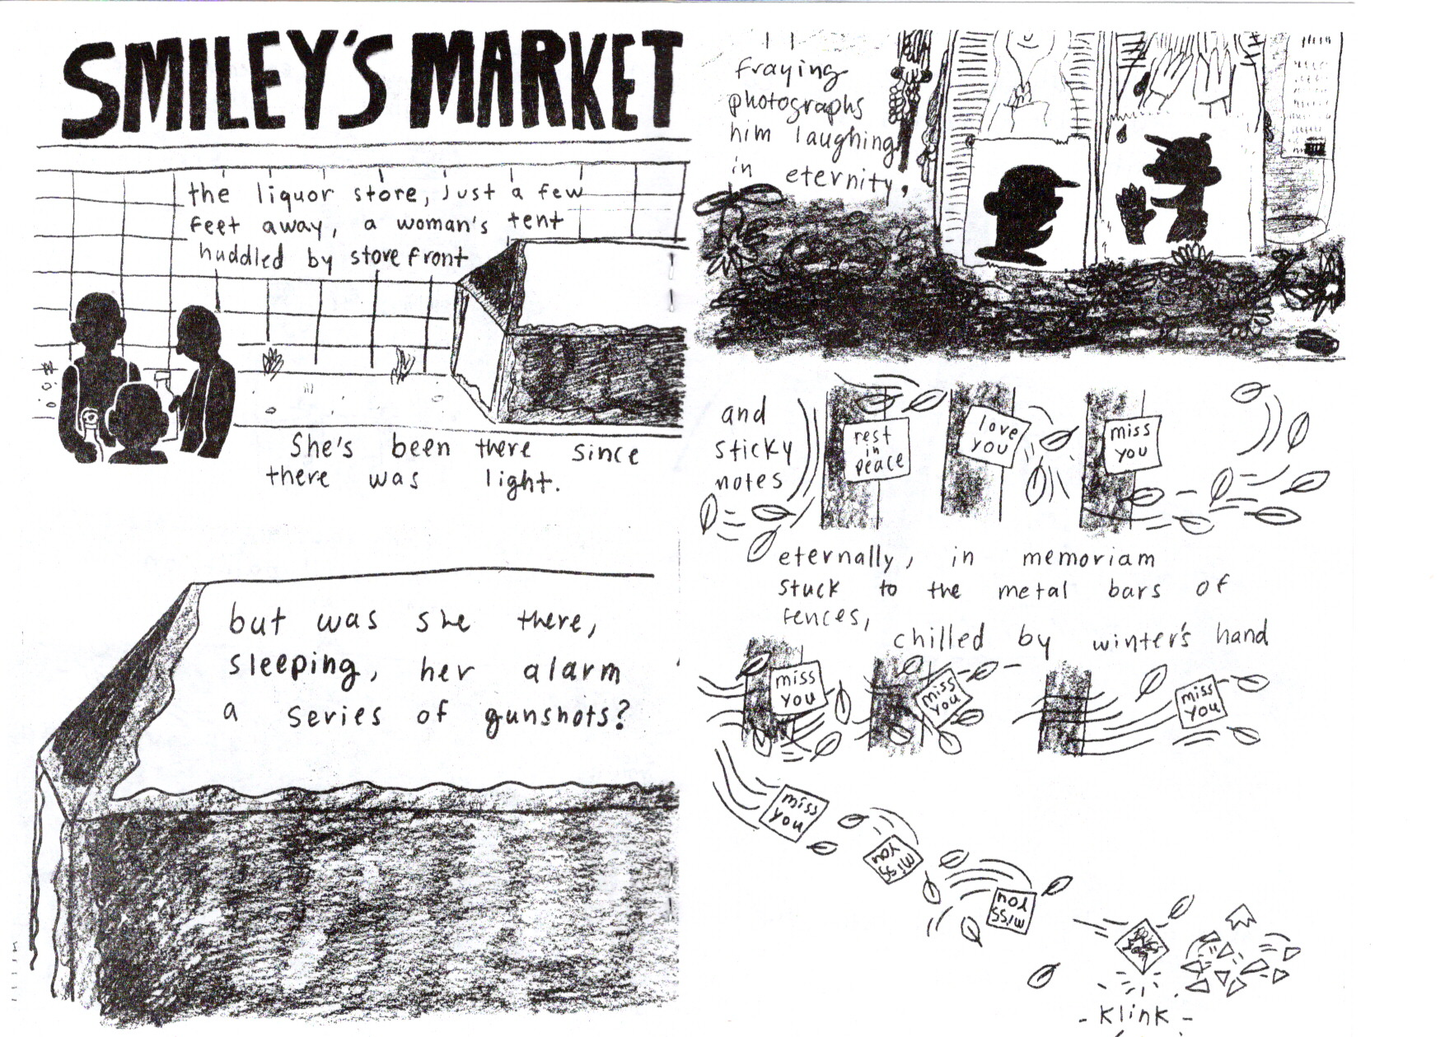 SMILEY'S MARKET
the liquor store, just a few
feet away, a woman's tent
huddled by storefront
She's been there since
there was light.
but was she there,
sleeping, her alarm
a series of gunshots?
fraying
photographs
him laughing
in eternity,
and
sticky
notes
rest
in
peace
love
you
miss
you
eternally, in memoriam
stuck to the metal bars of
fences,
chilled by winter's hand
miss
you
miss
you
miss
you
miss
you
miss
you
miss
you
- Klink -